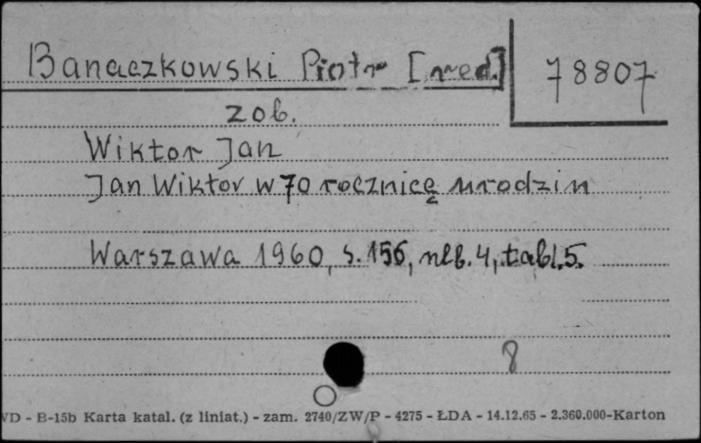 Banaczkowski Piotr [red.]
78807
zob.
Wiktor Jan
Jan Wiktor w 70 rocznicę urodzin
Warszawa 1960, s. 156, nlb. 4, tabl. 5.
8
VD - B-15b Karta katal. (z liniat.) - zam. 2740/ZW/P - 4275 - ŁDA - 14.12.65 - 2.360.000-Karton